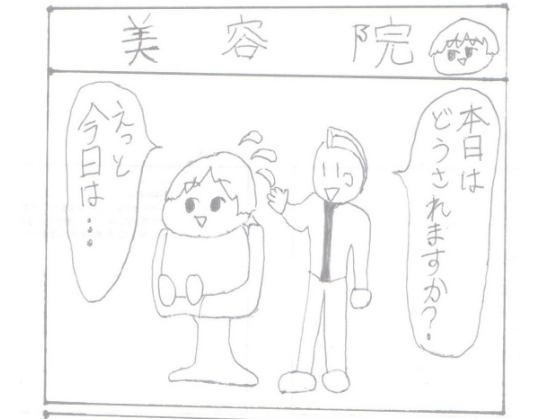 美容院
本日は
どうされますか?
えっと
今日は...